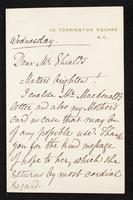 30 TORRINGTON SQUARE
W.C.
Wednesday.
Dear Mr Shields
Matters brighten!
I enclose Mr. Macdonald's
letter and also my Mother's
card in case that may be
of any possible use. Thank
you for the kind message
of hope to her, which she
returns by most cordial
regard.